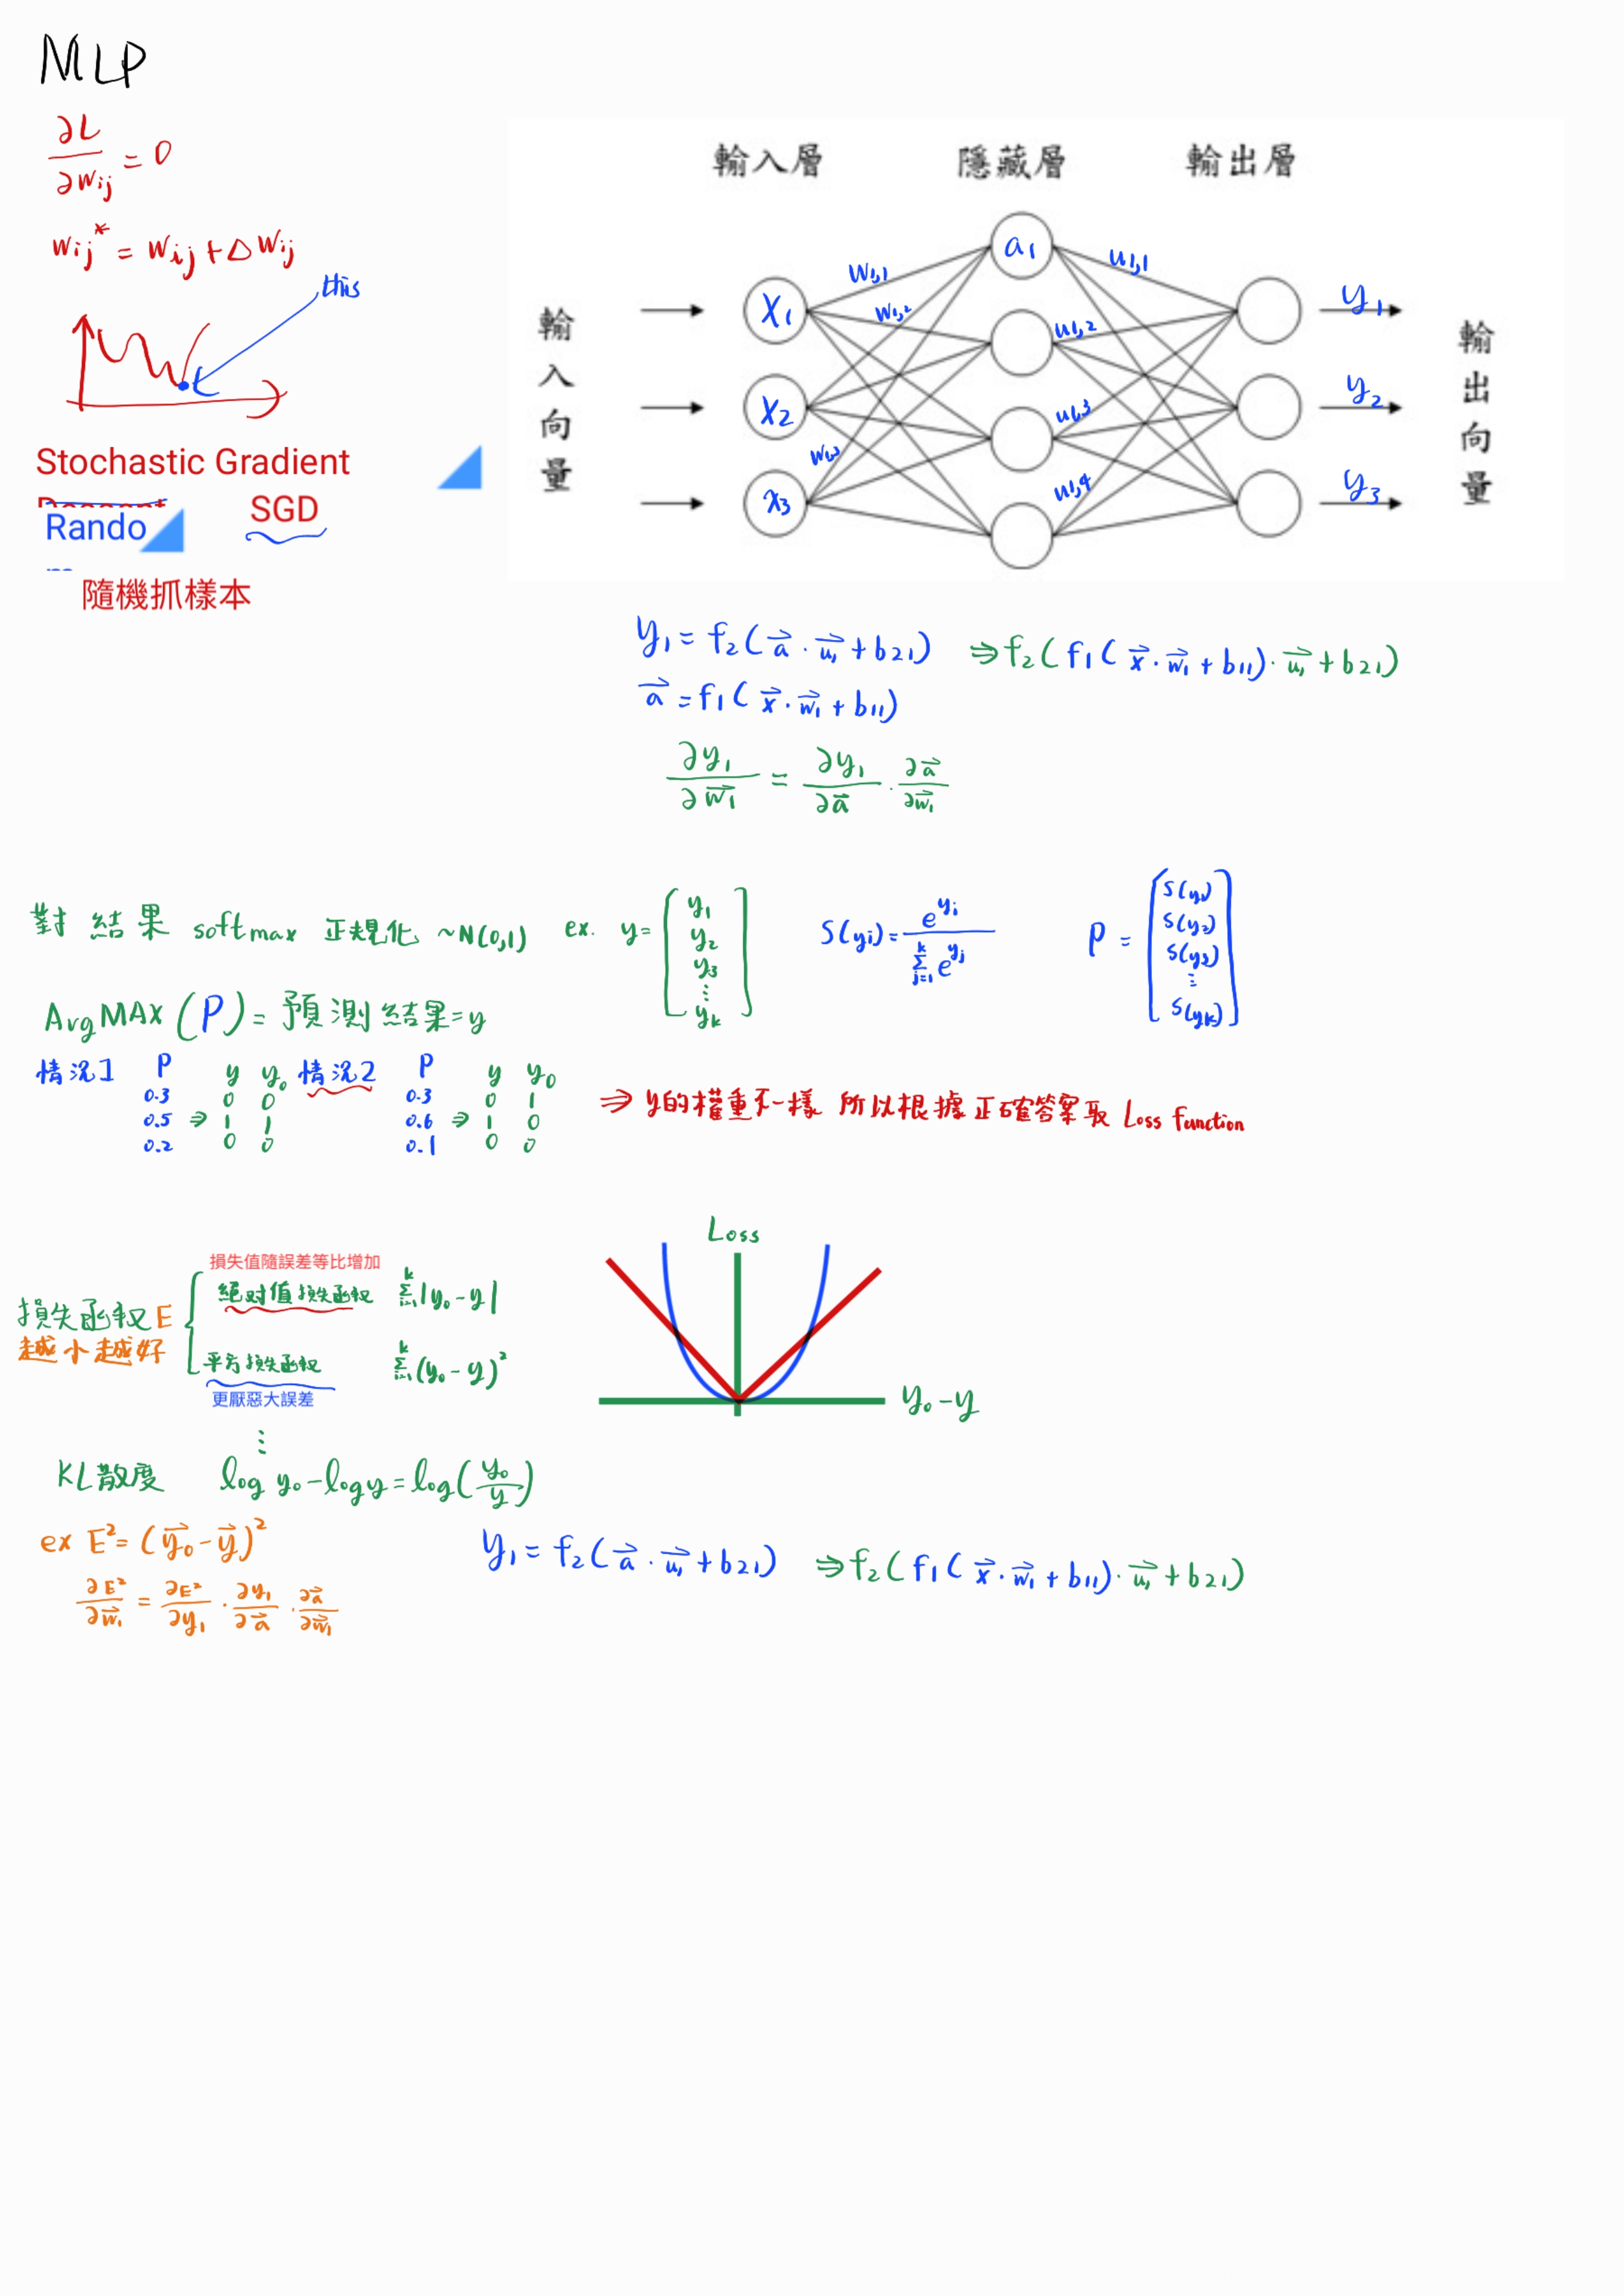 MLP
∂L/∂wij = 0
wij* = wij + Δwij
this
Stochastic Gradient
Descent
SGD
Random
隨機抓樣本
輸入層 隱藏層 輸出層
輸入向量
輸出向量
x1
x2
x3
a1
w1,1
w1,2
w1,3
u1,1
u1,2
u1,3
u1,4
y1
y2
y3
y1 = f2(a⃗ · u⃗1 + b21) ⇒ f2(f1(x⃗ · w⃗1 + b11) · u⃗1 + b21)
a⃗ = f1(x⃗ · w⃗1 + b11)
∂y1/∂w⃗1 = ∂y1/∂a⃗ · ∂a⃗/∂w⃗1
對結果 softmax 正規化 ~N(0,1) ex. y = [y1 y2 y3 ⋮ yk] S(yi) = e^yi / Σ_{j=1}^{k} e^yj P = [S(y1) S(y2) S(y3) ⋮ S(yk)]
ArgMAX(P) = 預測結果 = y
情況1 P y y0 情況2 P y y0
0.3 0 0 0.3 0 1
0.5 ⇒ 1 1 0.6 ⇒ 1 0
0.2 0 0 0.1 0 0
⇒ y的權重不一樣 所以根據正確答案取 Loss function
損失值隨誤差等比增加
損失函數E
越小越好
絕对值損失函數 Σ_{i=1}^{k} |y0 - y|
平方損失函數 Σ_{i=1}^{k} (y0 - y)²
更厭惡大誤差
⋮
Loss
y0 - y
KL散度 log y0 - log y = log(y0/y)
ex E² = (y⃗0 - y⃗)²
∂E²/∂w⃗1 = ∂E²/∂y1 · ∂y1/∂a⃗ · ∂a⃗/∂w⃗1
y1 = f2(a⃗ · u⃗1 + b21) ⇒ f2(f1(x⃗ · w⃗1 + b11) · u⃗1 + b21)